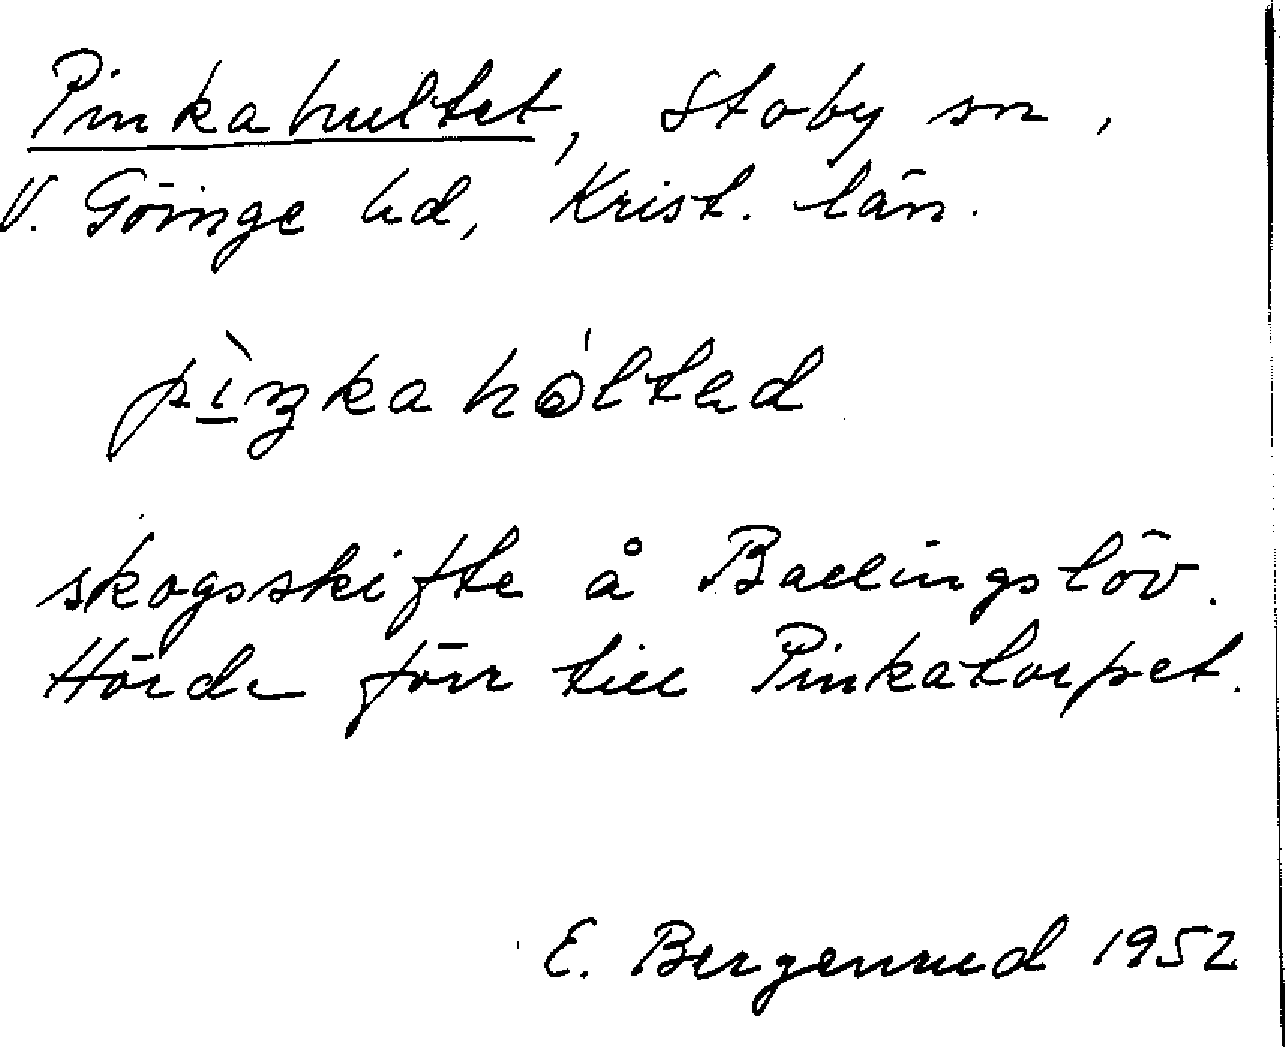 Pinkahultet, Stoby sn,
V. Göinge hd, Krist. län.
pìŋkahól̀tad
skogsskifte å Ballingslöv.
Hörde förr till Pinkatorpet.
E. Bergenrud 1952